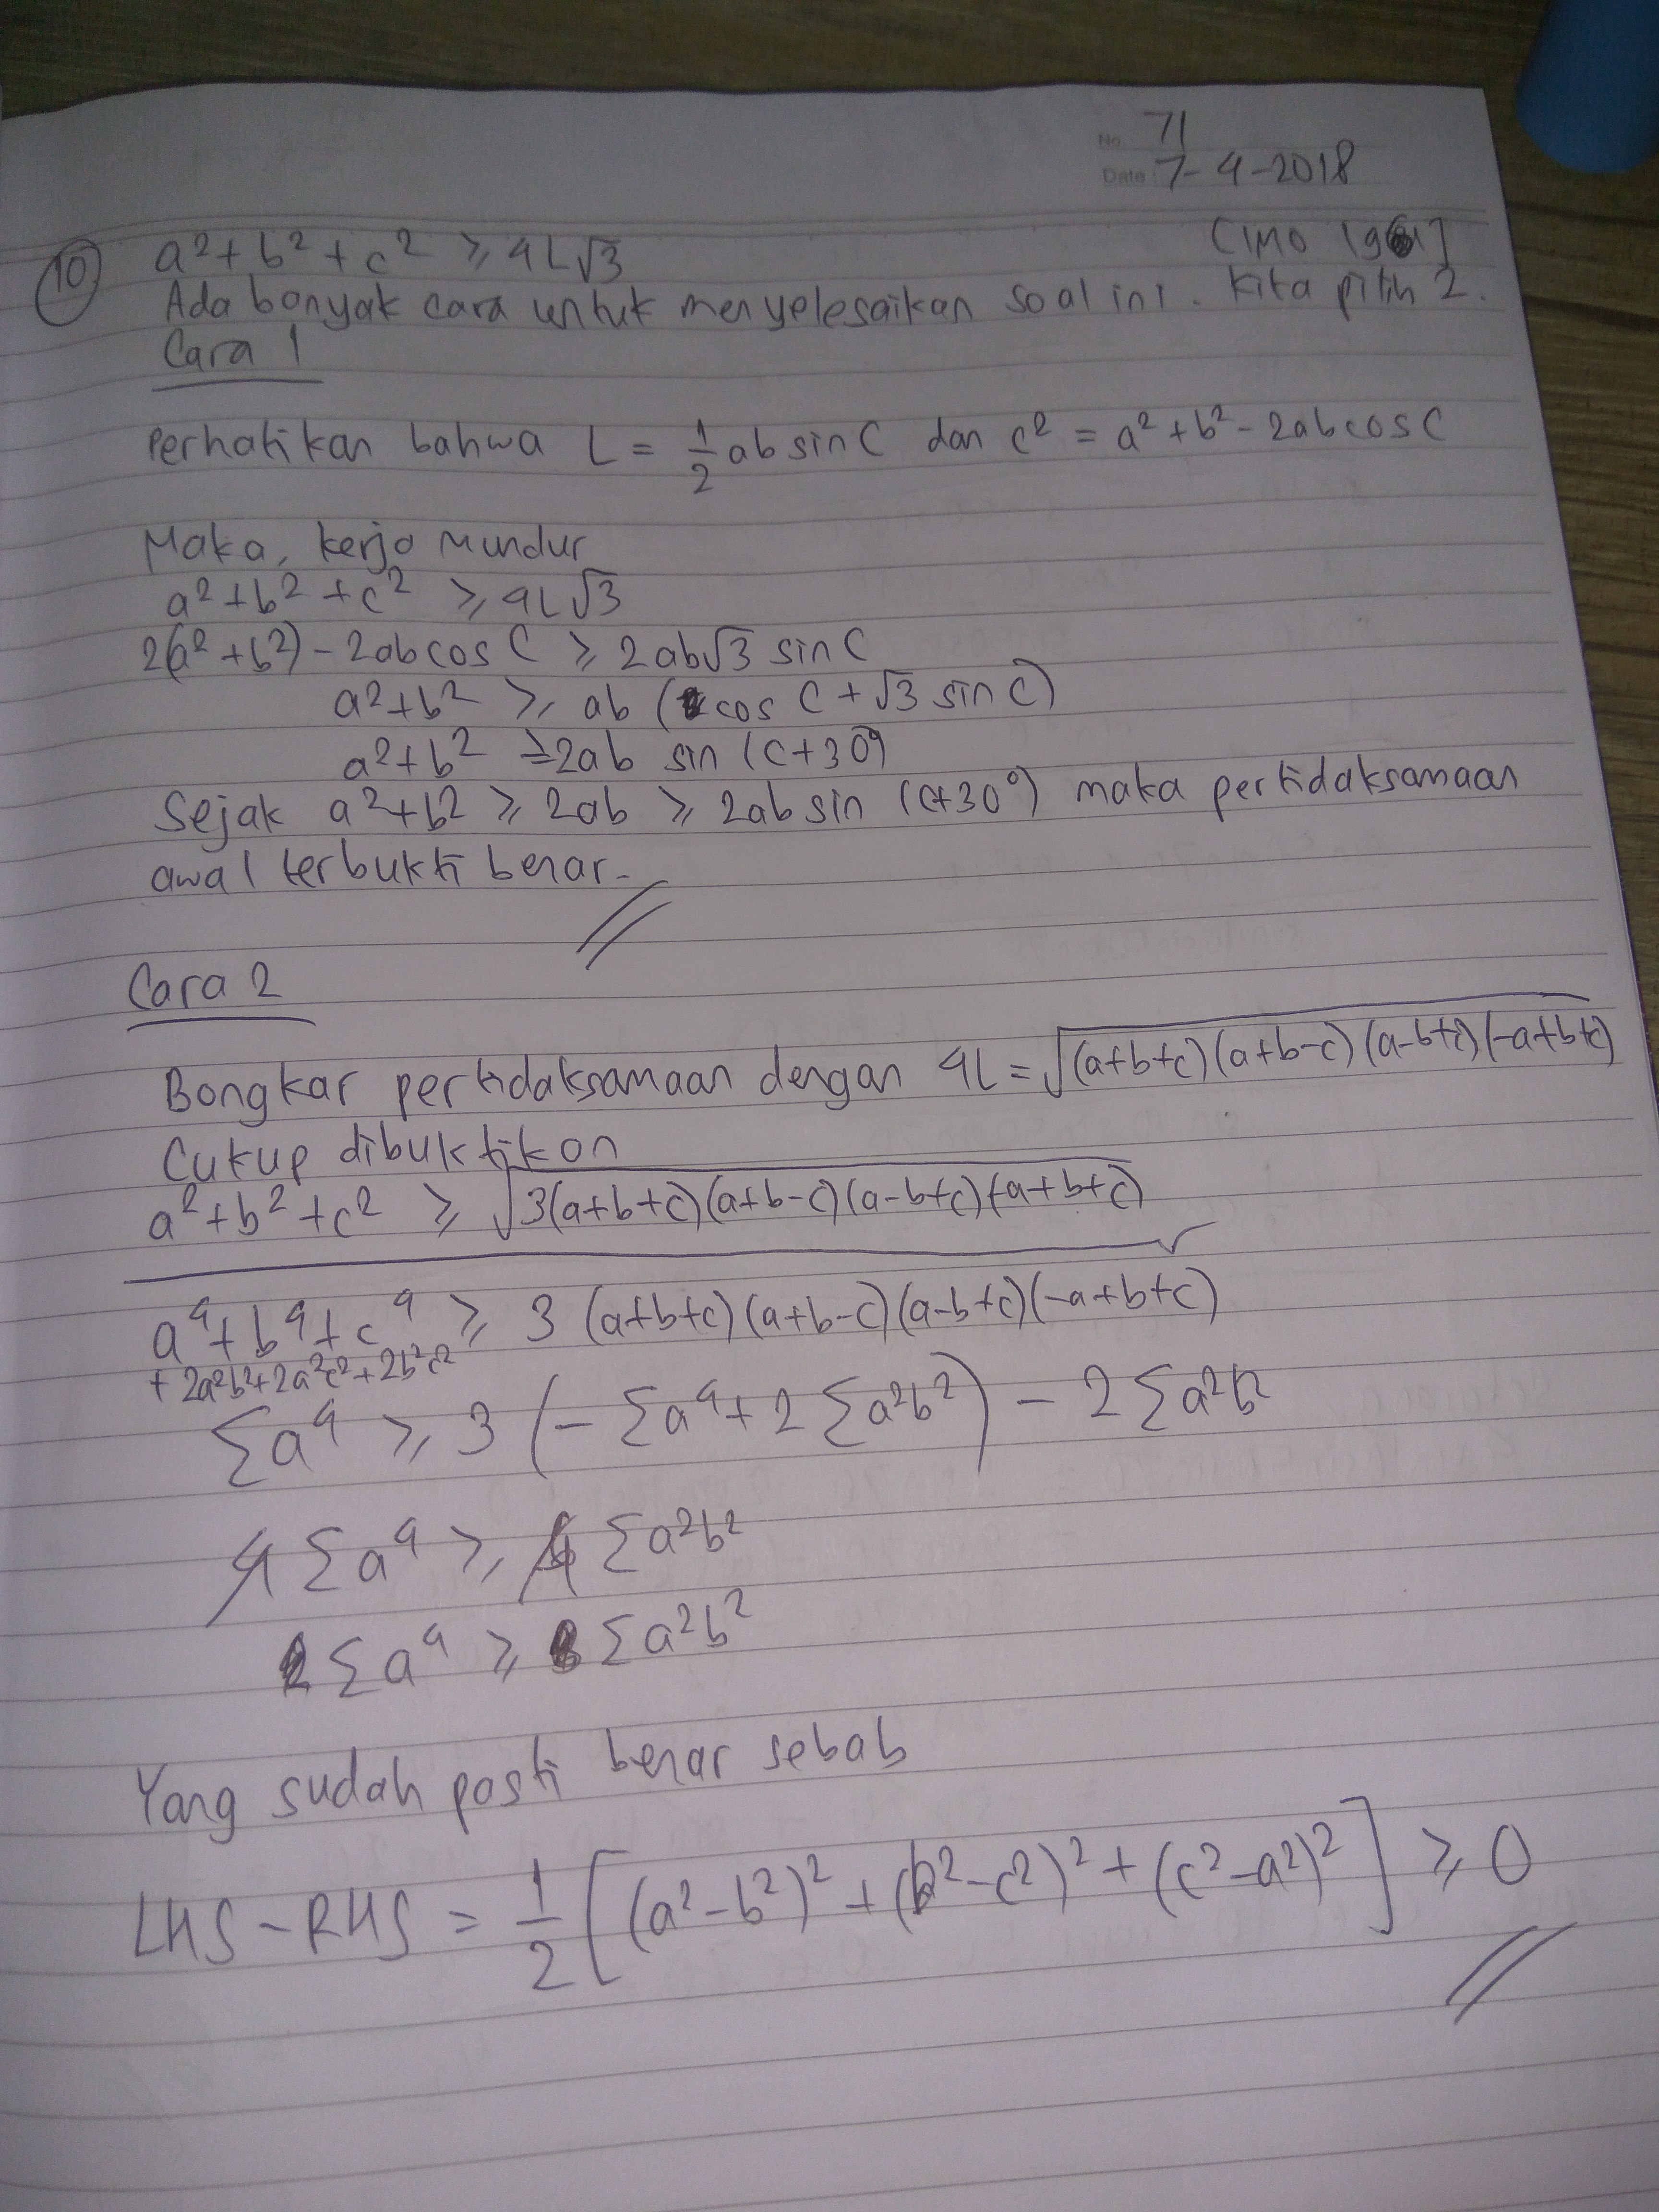 No 71
Date 7-4-2018
(10) a²+b²+c² ≥ 4L√3 [IMO 1961]
Ada banyak cara untuk menyelesaikan soal ini. Kita pilih 2.
Cara 1
Perhatikan bahwa L = 1/2 ab sin C dan c² = a²+b²-2ab cos C
Maka, kerja mundur
a²+b²+c² ≥ 4L√3
2(a²+b²)-2ab cos C ≥ 2ab√3 sin C
a²+b² ≥ ab (cos C + √3 sin C)
a²+b² ≥ 2ab sin (C+30°)
Sejak a²+b² ≥ 2ab ≥ 2ab sin (C+30°) maka pertidaksamaan
awal terbukti benar.
Cara 2
Bongkar pertidaksamaan dengan 4L = √(a+b+c)(a+b-c)(a-b+c)(-a+b+c)
Cukup dibuktikan
a²+b²+c² ≥ √3(a+b+c)(a+b-c)(a-b+c)(-a+b+c)
a⁴+b⁴+c⁴ ≥ 3 (a+b+c)(a+b-c)(a-b+c)(-a+b+c)
+ 2a²b²+2a²c²+2b²c²
Σa⁴ ≥ 3 (-Σa⁴+2Σa²b²) - 2Σa²b²
4 Σa⁴ ≥ 4 Σa²b²
Σa⁴ ≥ Σa²b²
Yang sudah pasti benar sebab
LHS-RHS = 1/2 [(a²-b²)²+(b²-c²)²+(c²-a²)²] ≥ 0